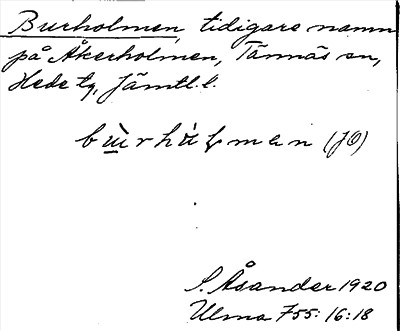 Burholmen, tidigare namn
på Åkerholmen, Tännäs sn,
Hede tg, Jämtl. l.
(JO)
S. Åsander 1920
Ulma 755:16:18